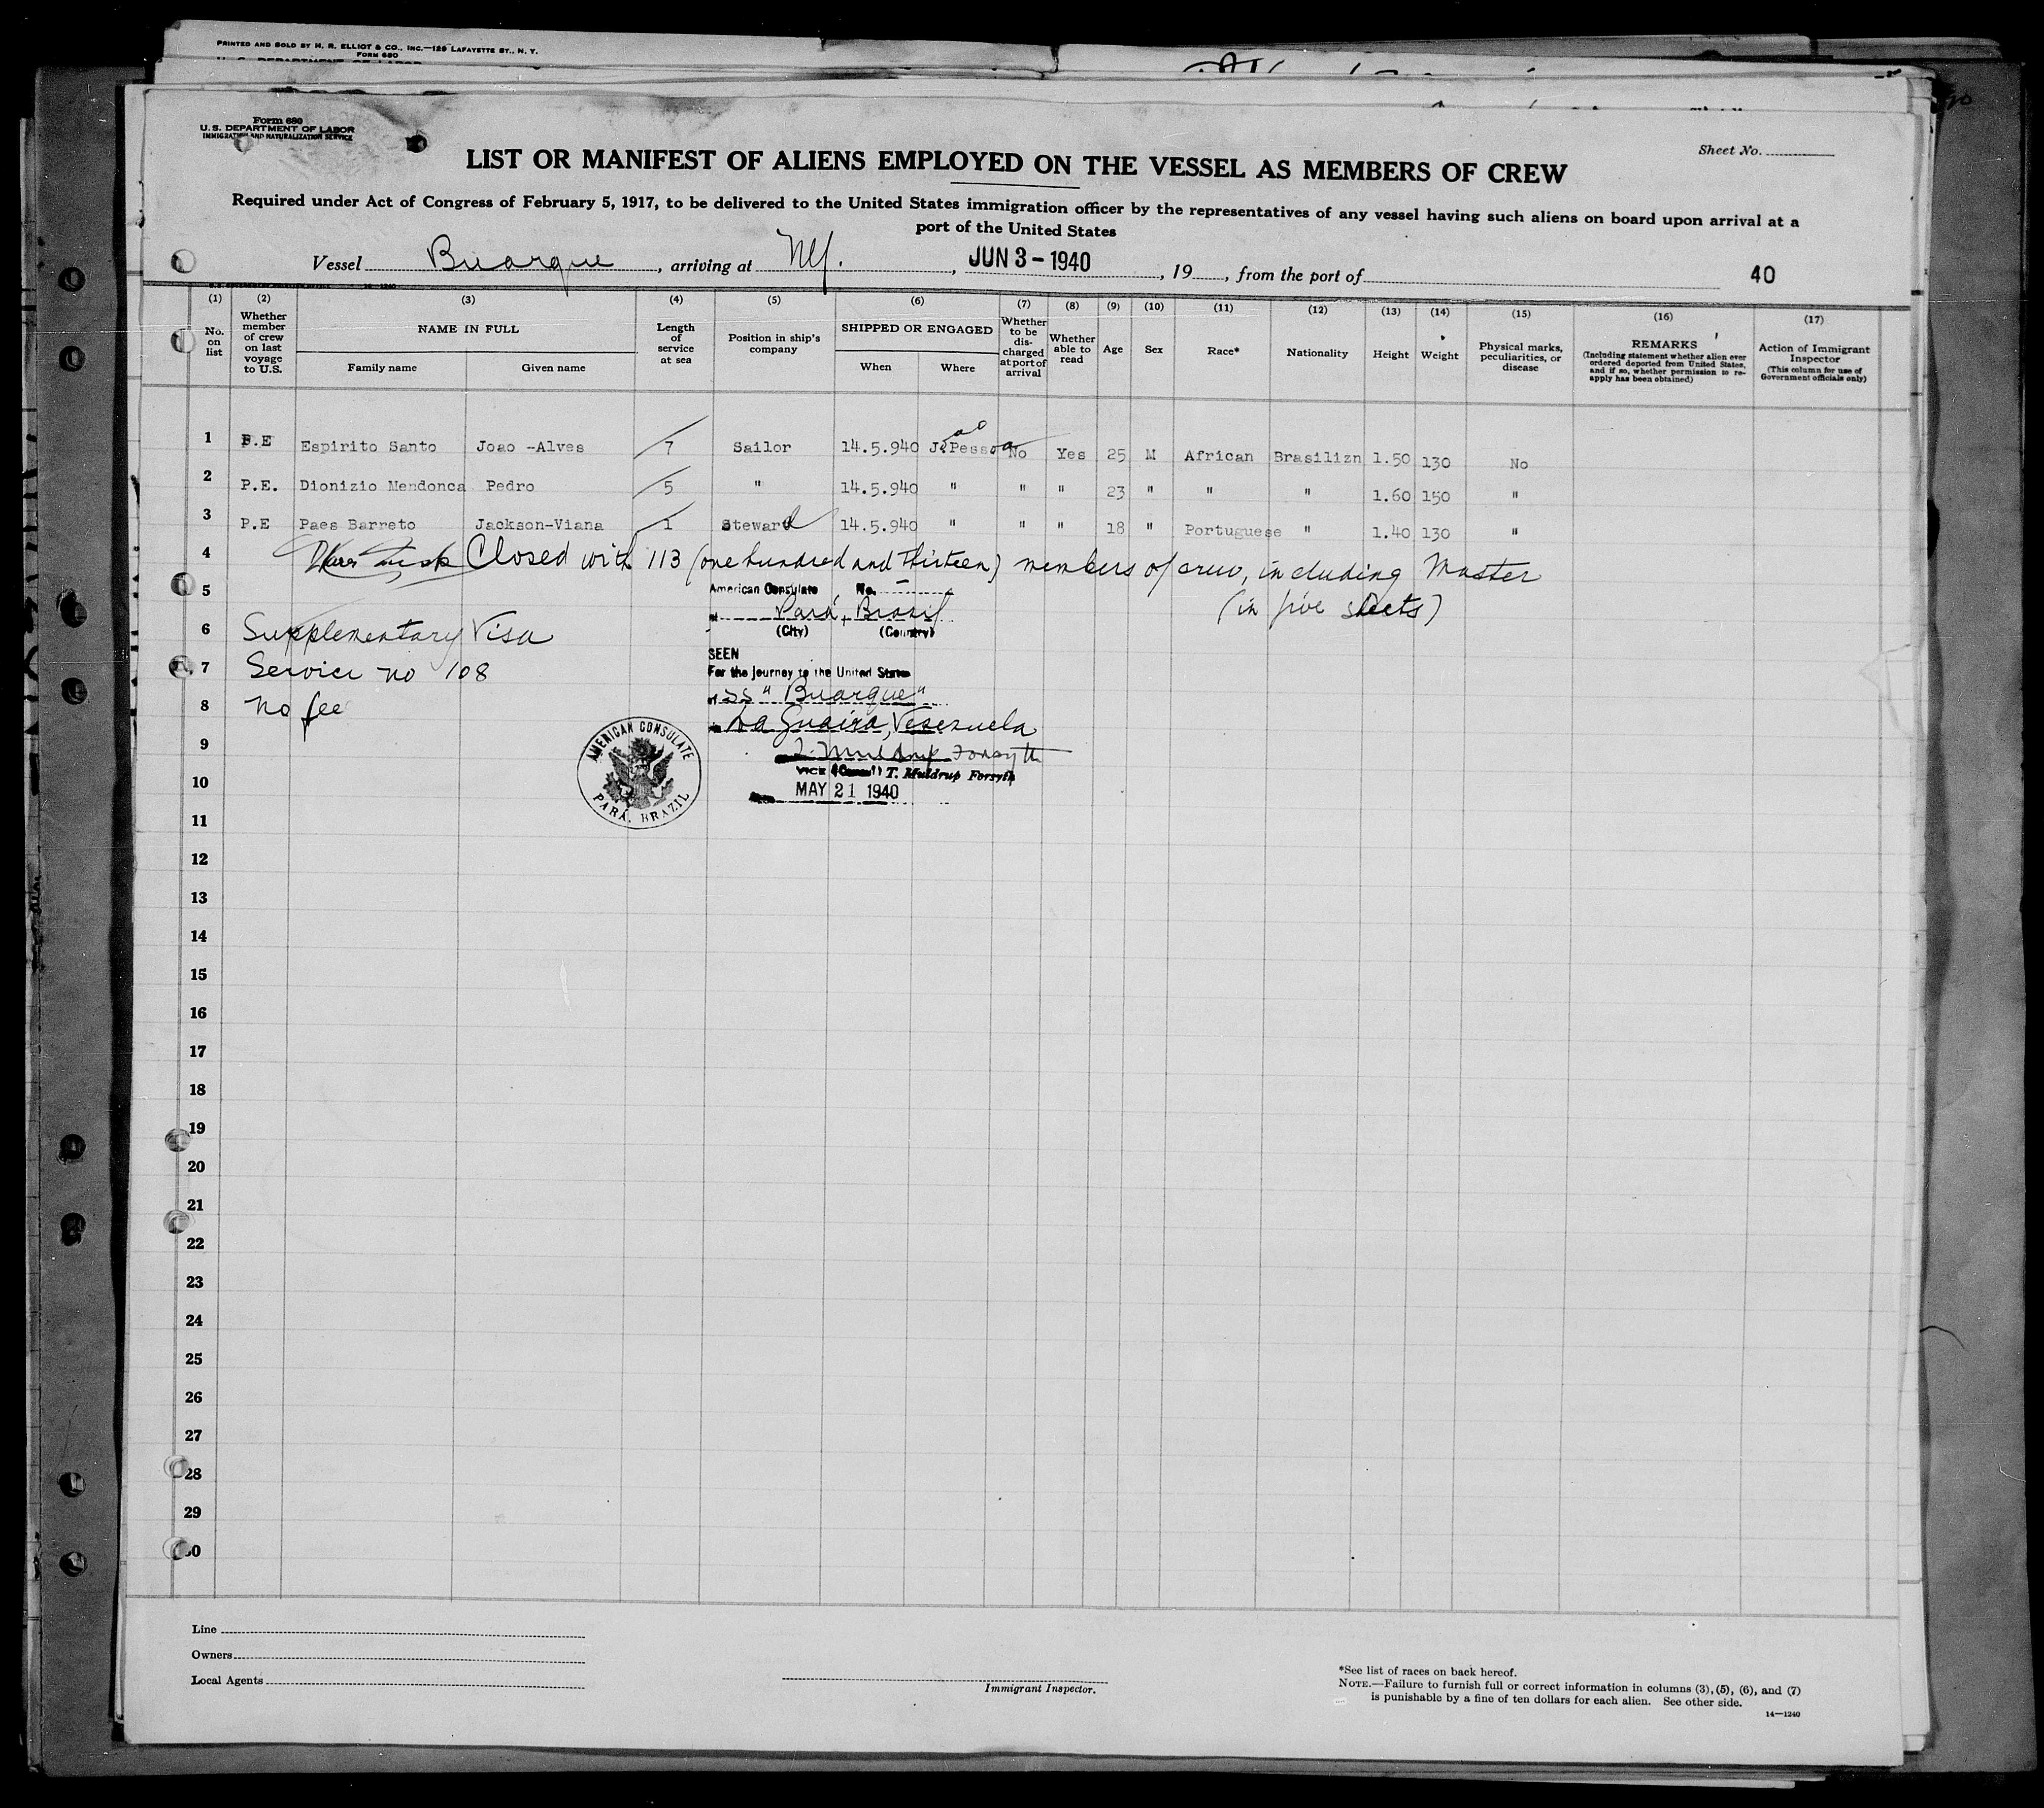 PRINTED AND SOLD BY H. R. ELLIOT & CO., INC.—129 LAFAYETTE ST., N. Y.
FORM 680
U. S. DEPARTMENT OF LABOR
Form 680
U. S. DEPARTMENT OF LABOR
IMMIGRATION AND NATURALIZATION SERVICE
Sheet No.
LIST OR MANIFEST OF ALIENS EMPLOYED ON THE VESSEL AS MEMBERS OF CREW
Required under Act of Congress of February 5, 1917, to be delivered to the United States immigration officer by the representatives of any vessel having such aliens on board upon arrival at a
port of the United States
Vessel Buarque, arriving at NY., JUN 3 - 1940, 19, from the port of 40
(1) (2) (3) (4) (5) (6) (7) (8) (9) (10) (11) (12) (13) (14) (15) (16) (17)
No. on list
Whether member of crew on last voyage to U.S.
NAME IN FULL
Family name Given name
Length of service at sea
Position in ship's company
SHIPPED OR ENGAGED
When Where
Whether to be discharged at port of arrival
Whether able to read
Age
Sex
Race*
Nationality
Height
Weight
Physical marks, peculiarities, or disease
REMARKS
(Including statement whether alien ever ordered deported from United States, and if so, whether permission to re-apply has been obtained)
Action of Immigrant Inspector
(This column for use of Government officials only)
1 P.E Espirito Santo Joao -Alves 7 Sailor 14.5.940 J.Pessoa No Yes 25 M African Brasilizn 1.50 130 No
2 P.E. Dionizio Mendonca Pedro 5 " 14.5.940 " " " 23 " " " 1.60 150 "
3 P.E Paes Barreto Jackson-Viana 1 Steward 14.5.940 " " " 18 " Portuguese " 1.40 130 "
4 Closed with 113 (one hundred and thirteen) members of crew, including Master
5 American Consulate, No. —
(in five sheets)
Pará, Brazil
6 Supplementary Visa
(City) (Country)
SEEN
7 Service no 108
For the journey to the United States
8 no fee
SS "Buarque"
La Guaira, Venezuela
9
T. Muldrup Forsyth
VICE (Consul) T. Muldrup Forsyth
10
MAY 21 1940
AMERICAN CONSULATE
PARÁ, BRAZIL
11
12
13
14
15
16
17
18
19
20
21
22
23
24
25
26
27
28
29
30
Line
Owners
Local Agents
Immigrant Inspector.
*See list of races on back hereof.
NOTE.—Failure to furnish full or correct information in columns (3), (5), (6), and (7)
is punishable by a fine of ten dollars for each alien. See other side.
14—1240